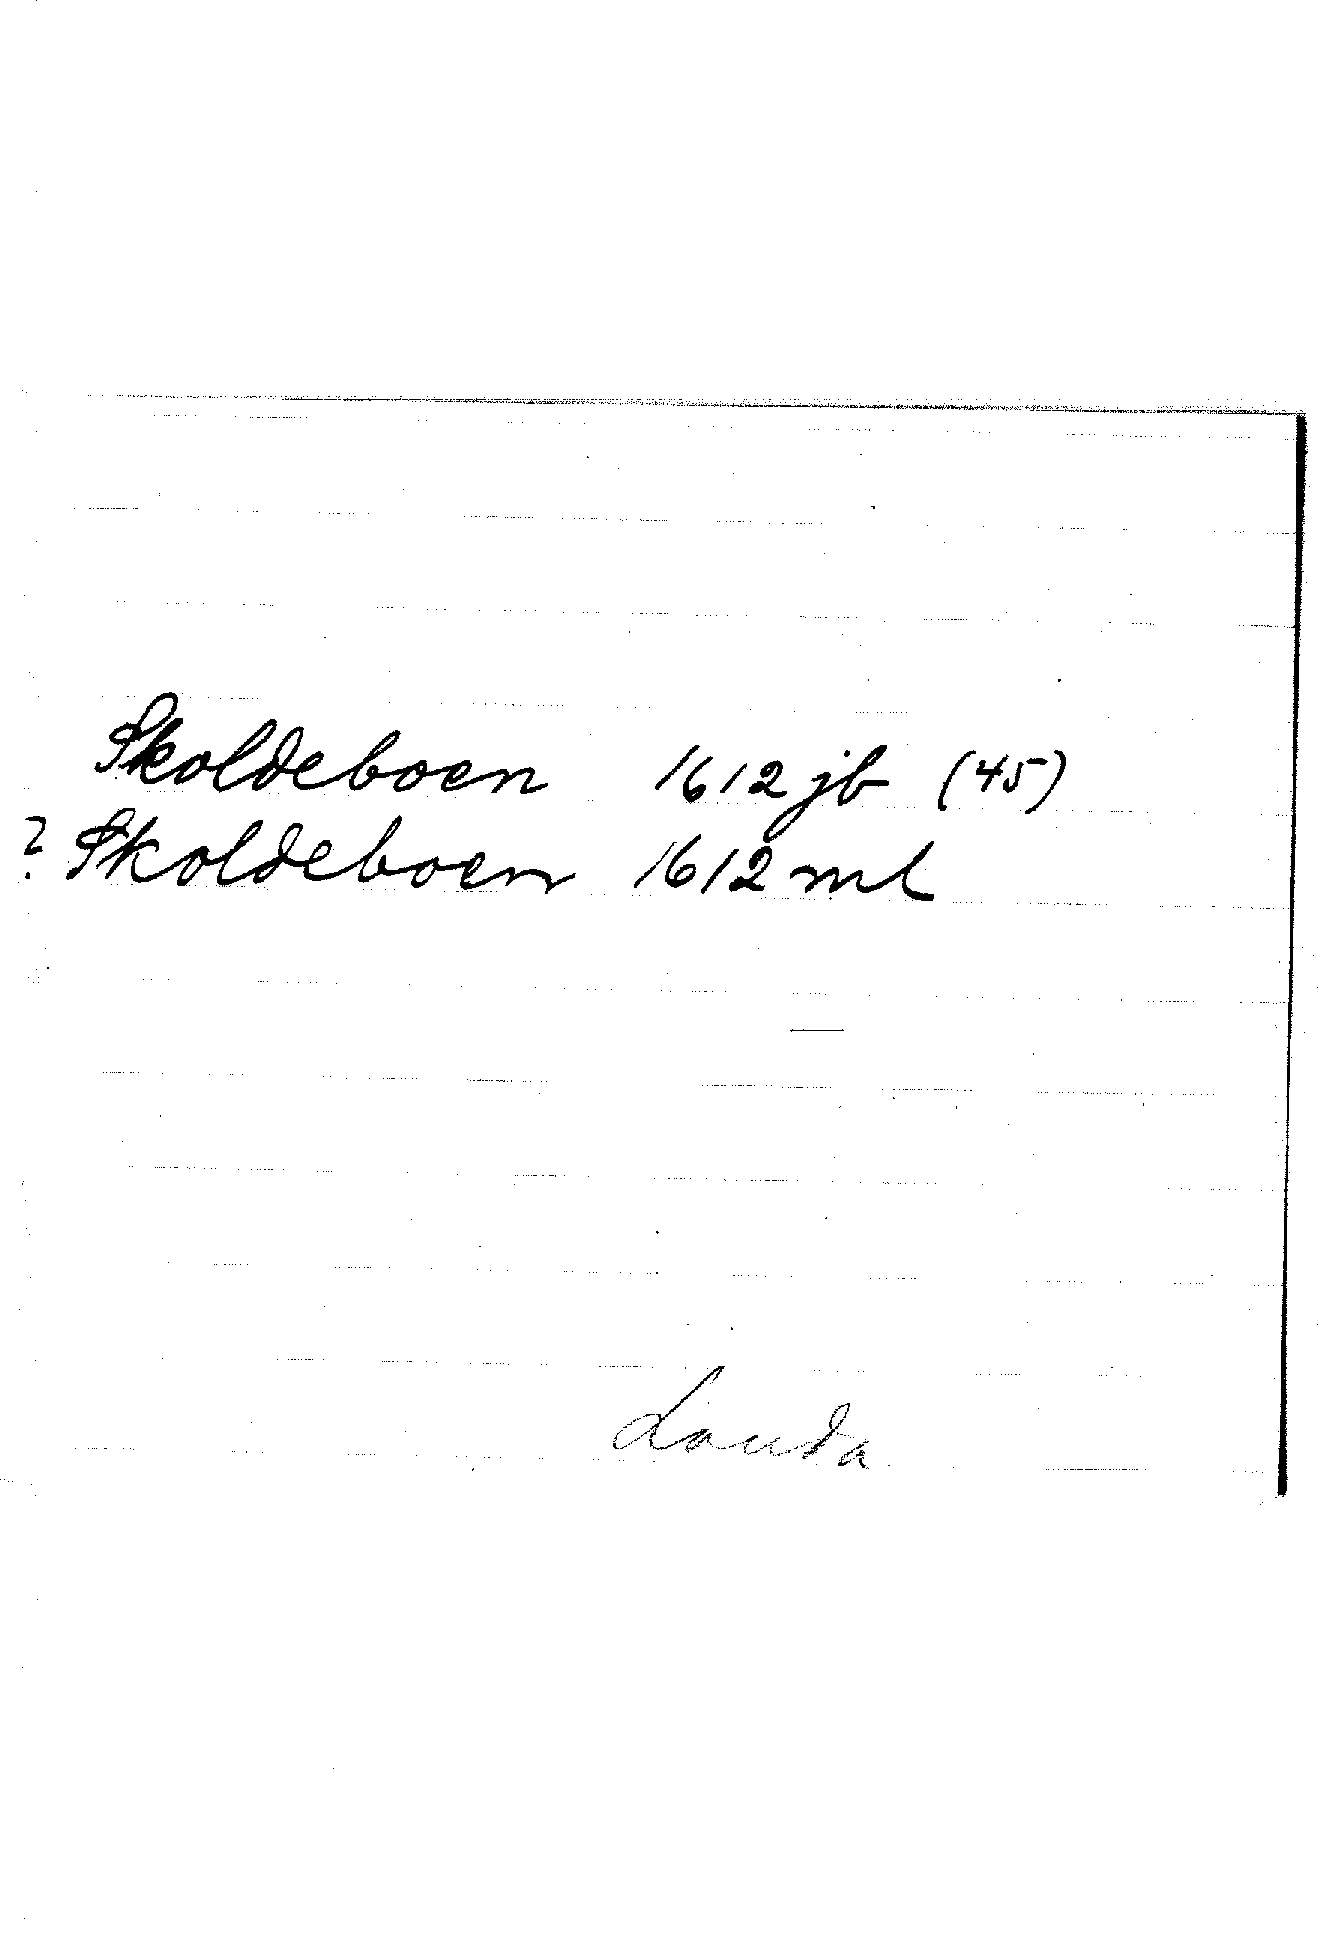 Skoldeboen 1612 jb (45)
? Skoldeboen 1612 ml
Landa